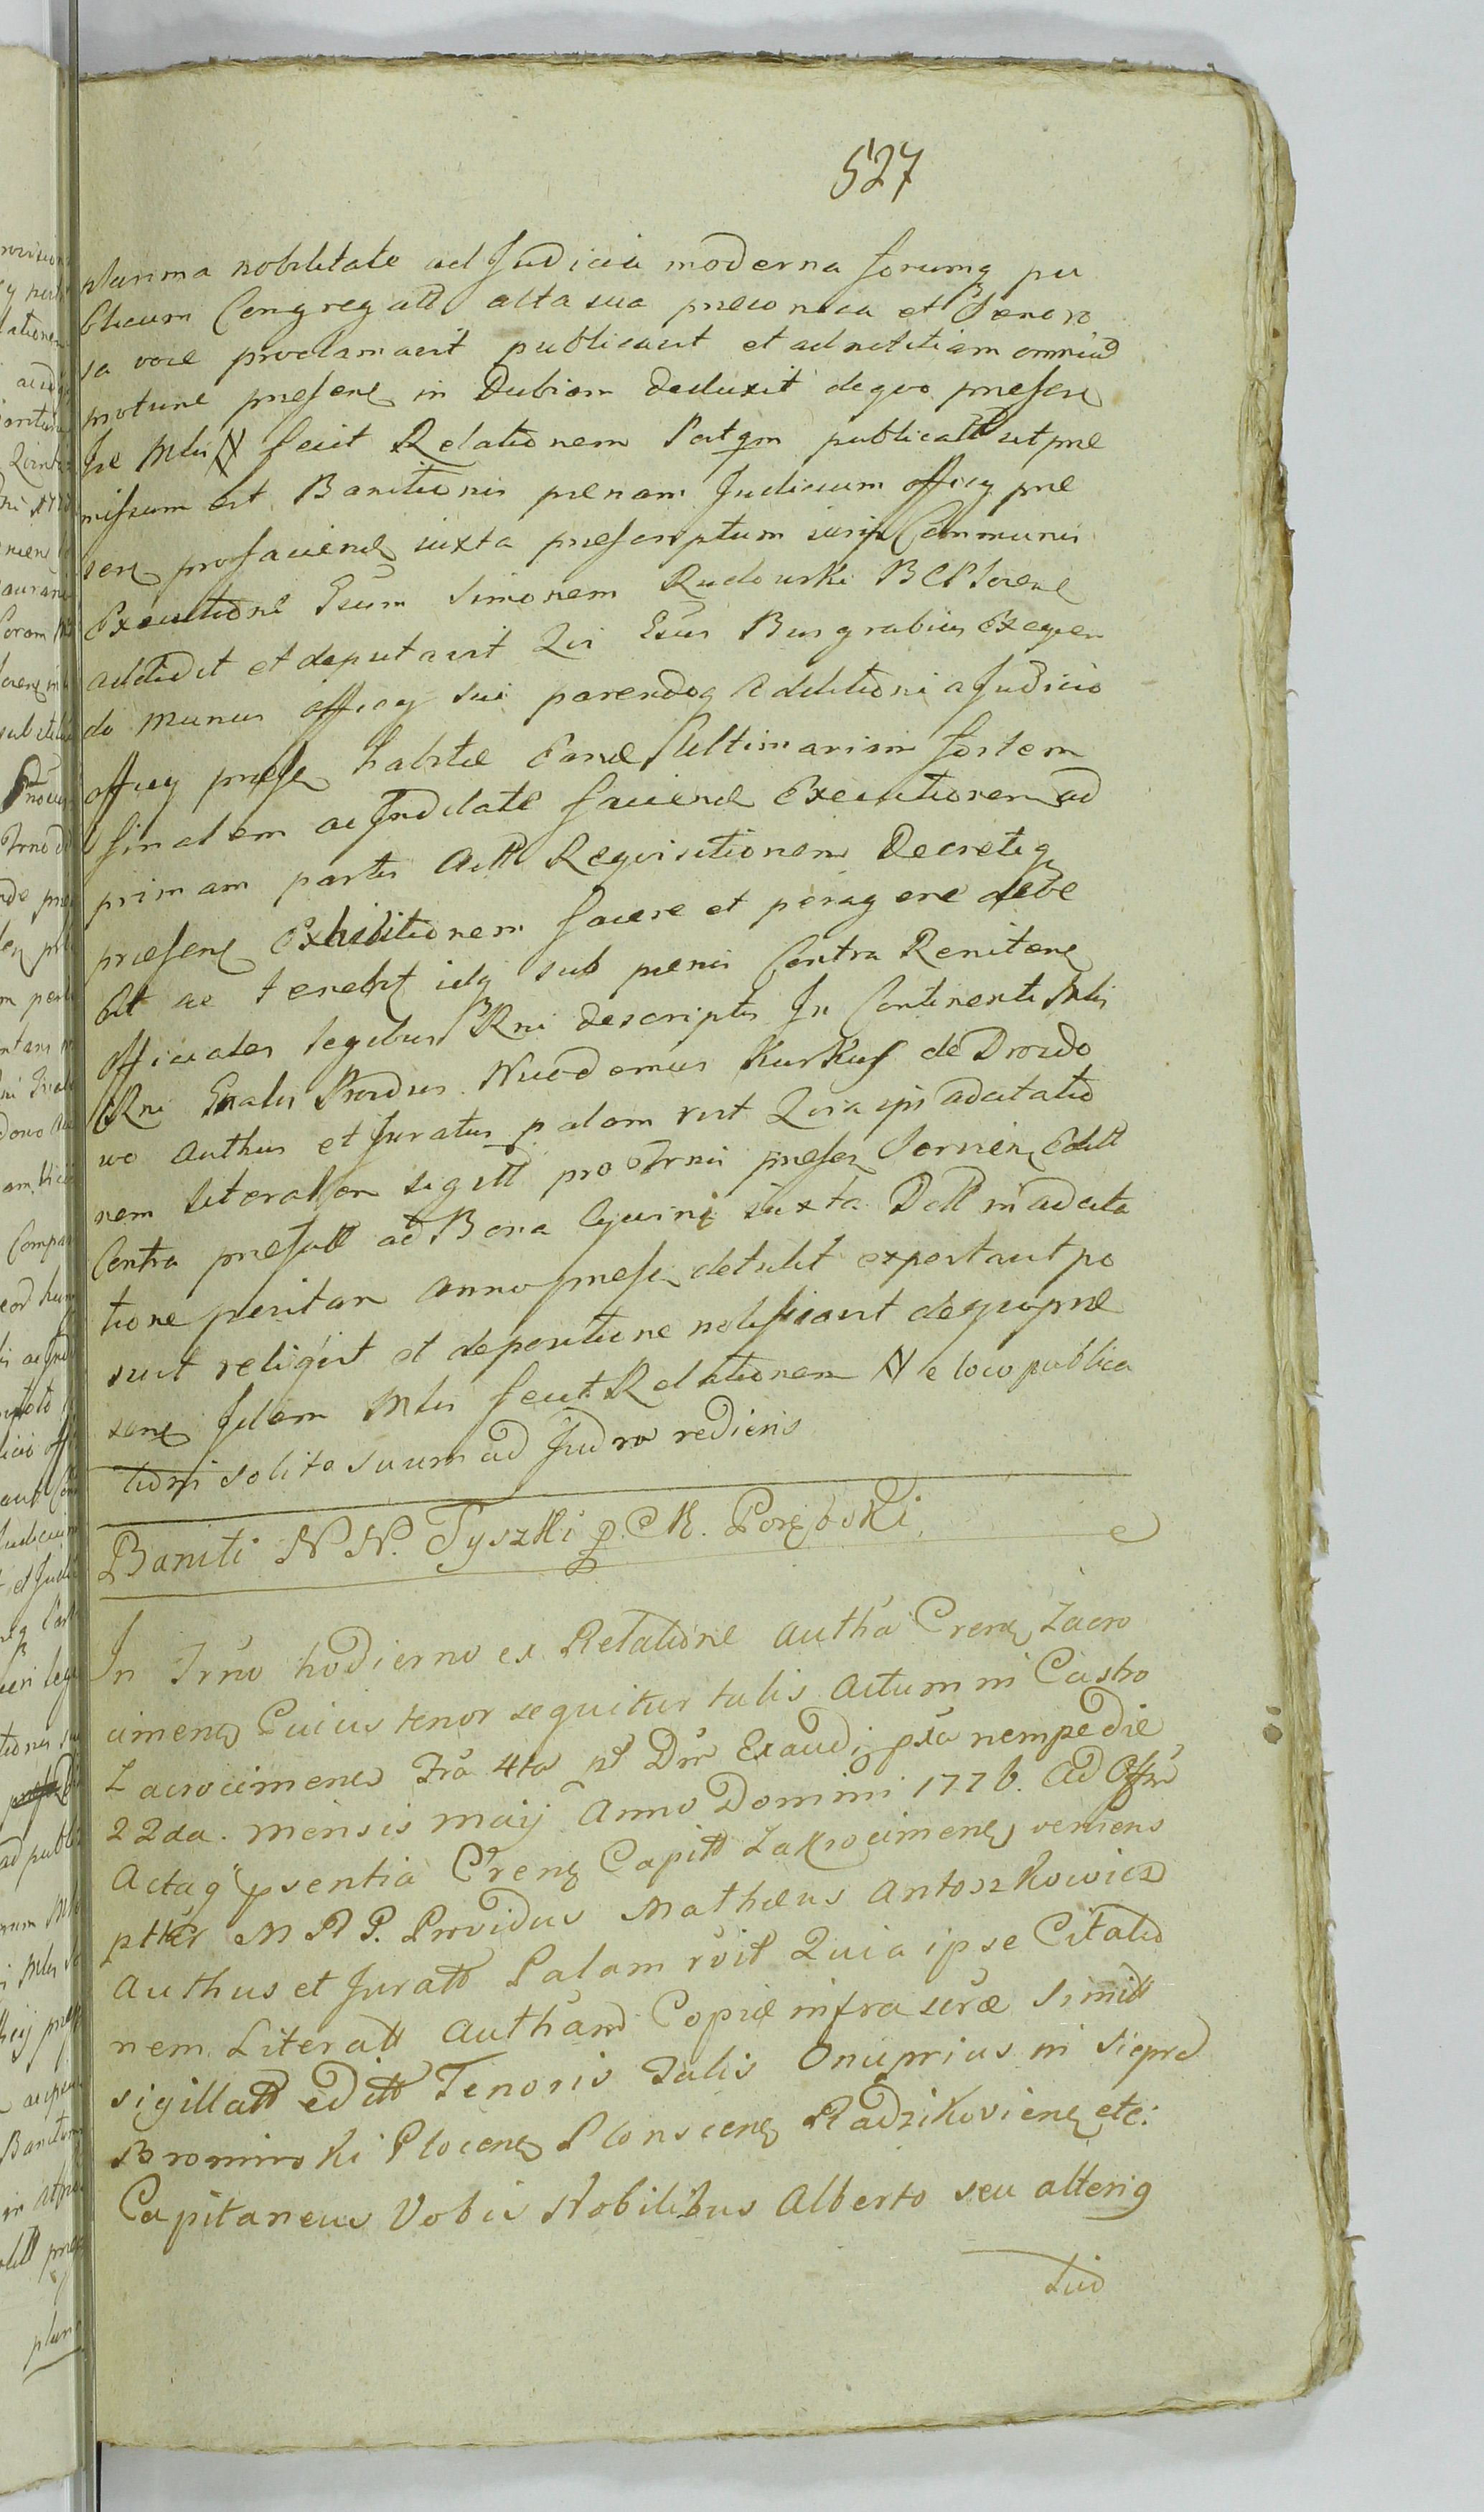 527
plurima nobilitate ad Judicia moderna forumq pu
blicum Congregatt alta sua preconica et Sonoro
sa voce proclamavit publicavit et ad notitiam omniu
motune presens in Dubiom deduxit de quo presens
Ise Mlis N fecit Relationem Patqm publicatt ut pre
missum est Banitionis penam Judicium officy pre
sens pro faciend juxta prescriptum juris Communis
Executione Gsum Simonem Rudowski B C P Serene
addidit et deputavit Qui Gsus Burgrabius Exequen
do munus officy sui parendoq Additioni a Judicio
officy prese habitae Banae Ultimariam fortem
finalem ac Indilate faciend Executionem ad
primam partis Actt Requisitionem Decretiq
presens Exhibitionem facere et peragere debe
bit ac tenebit idq sub penis Contra Renitens
officiales legibus Rni descriptis In Continenti Mlis
Rni Gnalis Prvdus Nicodemus Kurkus de Drozdo
wo Authus et Juratus palam rvit Quia ipse ad citatio
nem literalem sigtt pro Trmi presen Servien Editt
Contra prefatt ad Bona Cywiny juxta Dtt in ad cita
tione peritam anno prese detulit exportavit po
suit religit et depositione notificavit de quo pre
sens Idem Mlis fecit Relationem N e loco publica
tioni solito suum ad Judra rediens
Baniti N N. Tyszki p. C K. Porębski
In Trno hodierno ex Relatione autha Crens Zacro
cimens Cuius tenor sequitur talis Actum in Castro
Zacrocimens Fra 4ta pt Dm Exaudi pxa nempe die
22da. mensis maij Anno Domini 1776. ad Offm
Actaq psentia Crens Capitt Zakrocimens veniens
ptter M R P. Providus Mathaeus Antoszkowicz
Authus et Juratt Palam rvit Quia ipse Citatio
nem Literatt authand Copiae infra scrae Simitt
sigillatt editt Tenoris Talis Onuprius in Siepra
Bromirski Plocens Plonscens Radzikoviens etc:
Capitaneus Vobis Nobilibus Alberto seu alteriq
tuo